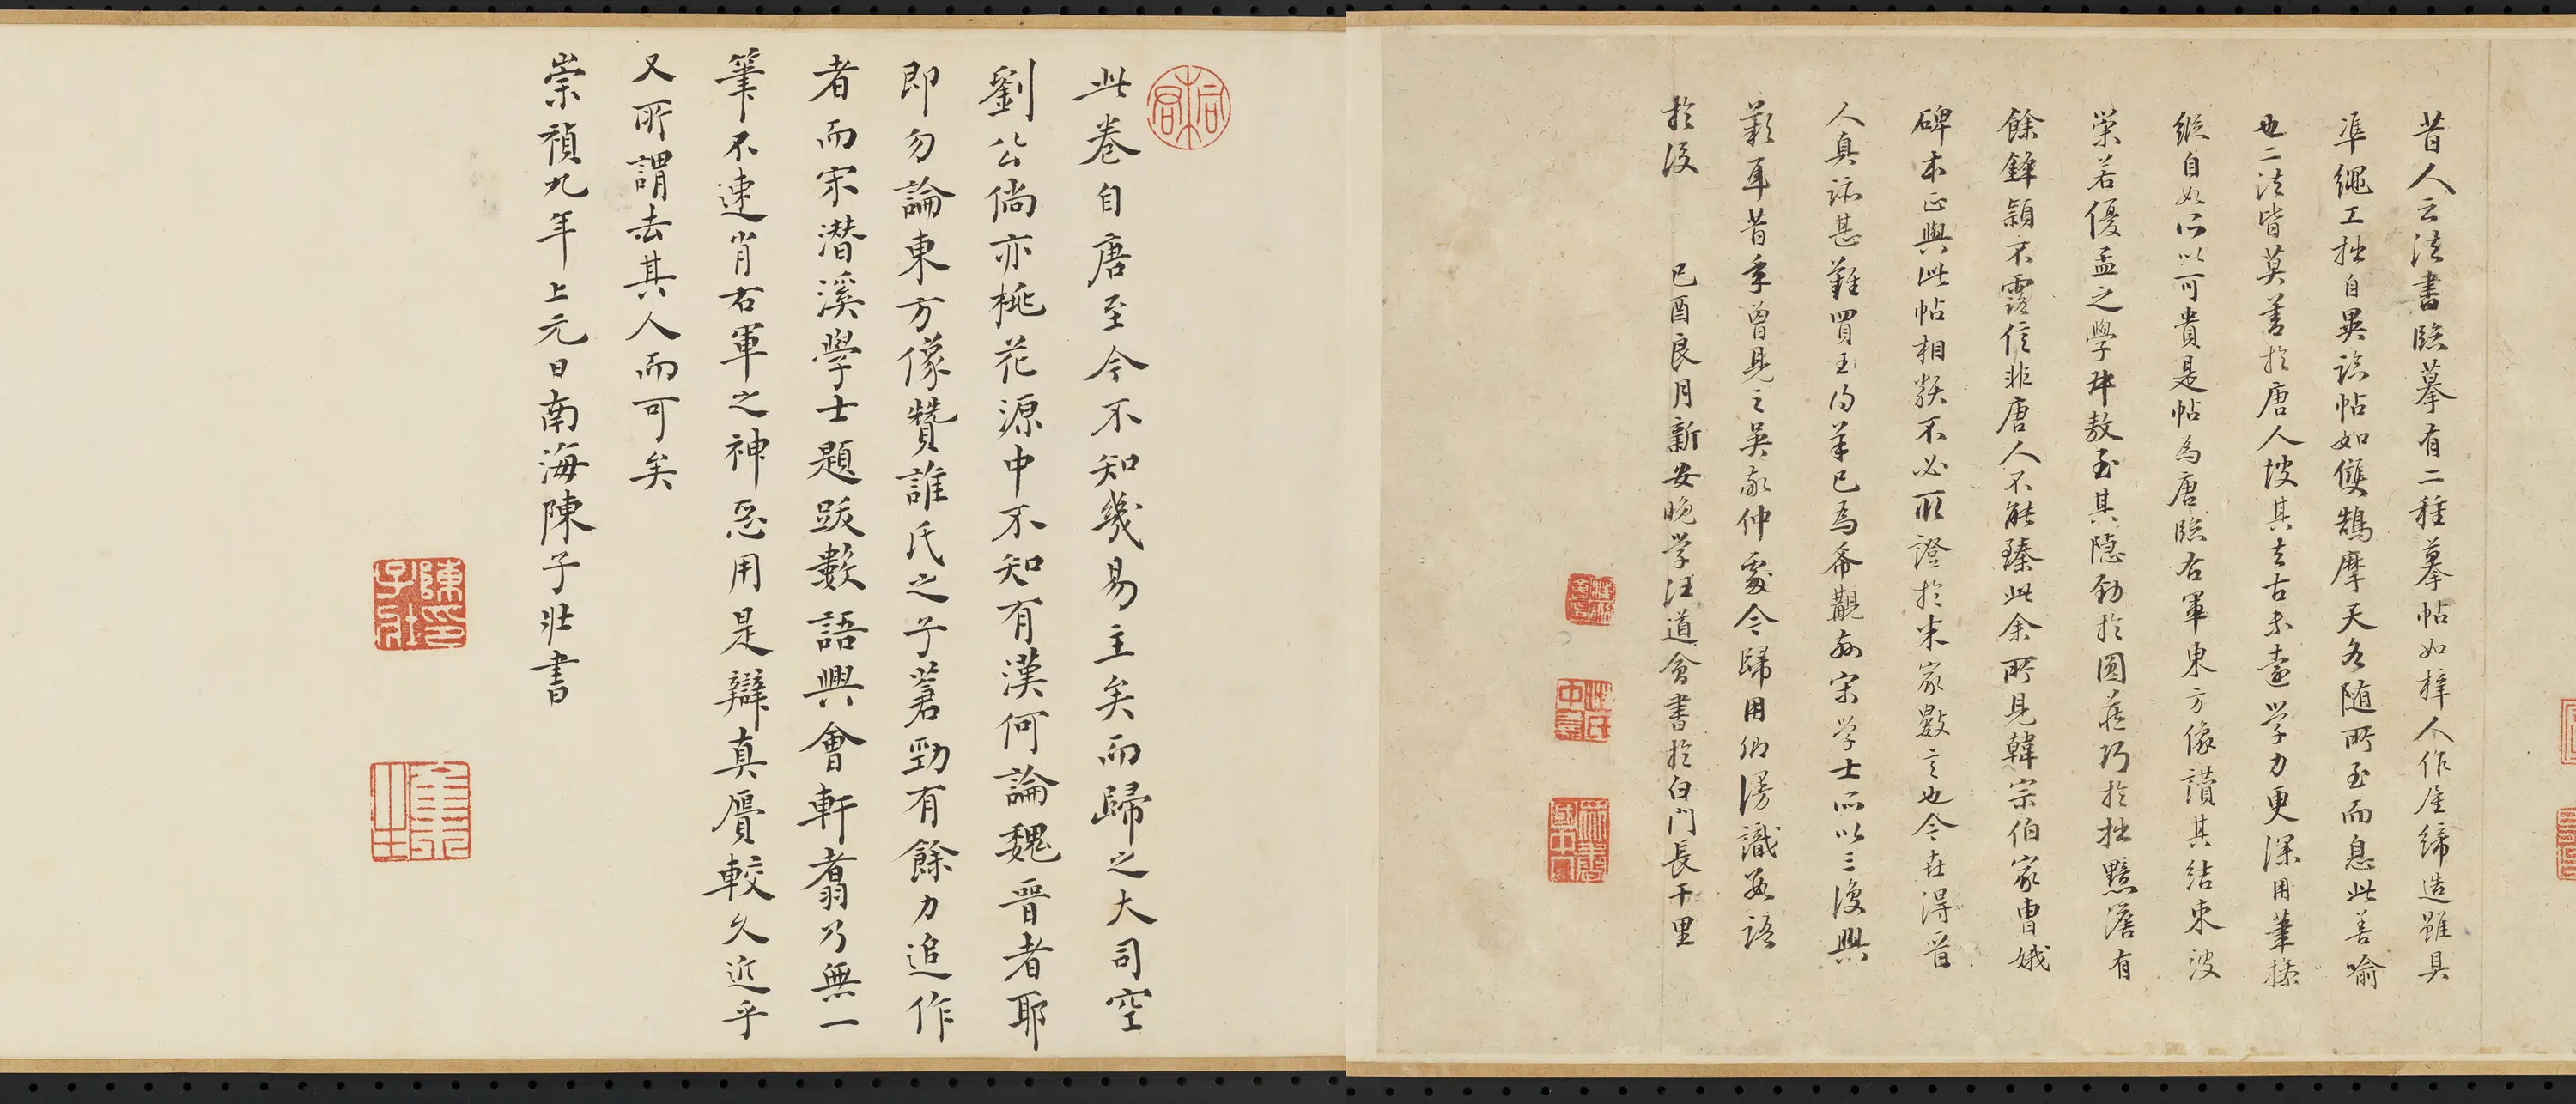 昔人云法書臨摹有二種摹帖如梓人作屋締造雖具
準繩工拙自異臨帖如雙鵠摩天各随所至而息此善喻
也二法皆莫善於唐人彼其去古未遠学力更深用筆操
縱自如所以可貴是帖為唐臨右軍東方像讚其結束波
榮若優孟之學叔敖至其隐勁於圓藏巧於拙黯澹有
餘鋒頴不露信非唐人不能臻此余所見韓宗伯家曹娥
碑本正與此帖相類不必取證於米家數言也今在得晋
人真跡甚難買王得羊已為希覯如宋学士所以三復興
歎耳昔年曾見之吳敬仲處今歸用卿漫識數語
於後 己酉良月新安晚学汪道會書於白門長干里
此卷自唐至今不知幾易主矣而歸之大司空
劉公倘亦桃花源中不知有漢何論魏晉者耶
即勿論東方像贊誰氏之手著勁有餘力追作
者而宋潛溪學士題跋數語興會軒翥乃無一
筆不速肖右軍之神惡用是辯真贗較久近乎
又所謂去其人而可矣
崇禎九年上元日南海陳子壯書
陳子壯印